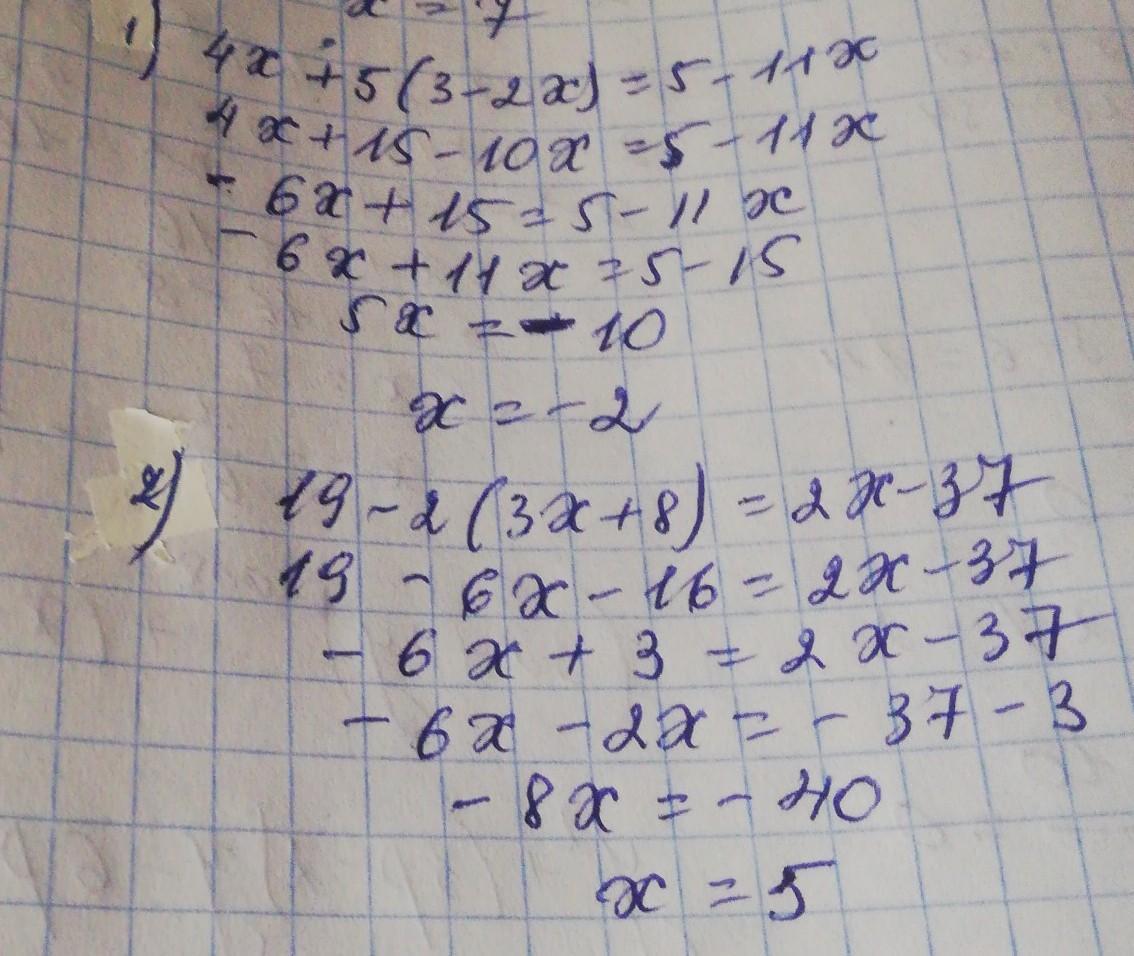 x = 7
1) 4x + 5(3-2x) = 5-11x
4x+15-10x = 5-11x
- 6x+15=5-11x
- 6x+11x=5-15
5x = -10
x = -2
2) 19-2(3x+8) = 2x-37
19 - 6x-16 = 2x-37
- 6x + 3 = 2x-37
- 6x - 2x = - 37-3
- 8x = - 40
x = 5